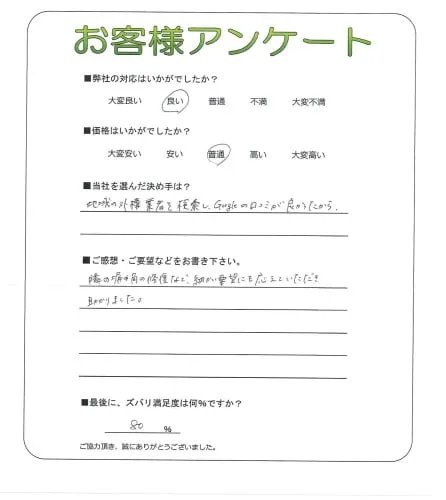 お客様アンケート
■弊社の対応はいかがでしたか？
大変良い 良い 普通 不満 大変不満
■価格はいかがでしたか？
大変安い 安い 普通 高い 大変高い
■当社を選んだ決め手は？
地域の外構業者を検索し、Googleの口コミが良かったから。
■ご感想・ご要望などをお書き下さい。
隣の塀の角の修復など、細かい要望にも応えていただき
助かりました。
■最後に、ズバリ満足度は何％ですか？
80 ％
ご協力頂き、誠にありがとうございました。